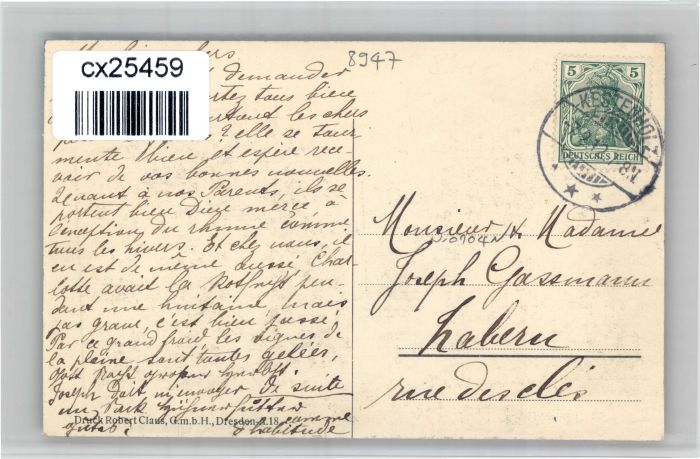 8947
cx25459
demander
portez tous bien
les chers
? elle se tour
mente bien et espère rece
voir de vos bonnes nouvelles.
Quant à nos Parents, ils se
portent bien Dieu merci à
l'exception du rhume comme
tous les hivers. Et chez nous, il
en est de même aussi, Char
lotte avait la pen
dant une huitaine, mais
pas grave, c'est bien passé.
Par ce grand froid les vignes de
la plaine sont toutes gelées,
Joseph doit m'envoyer de suite
un Pack Hühnerfutter
comme
d'habitude
Druck Robert Claus, G.m.b.H., Dresden-A.18.
5 5
DEUTSCHES REICH
KESTENHOLZ
Monsieur & Madame
Joseph Gassmann
Zabern
rue des clés